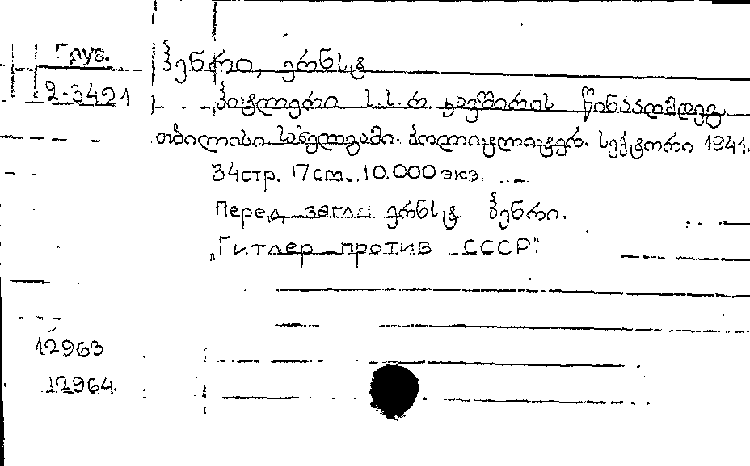 Груз.
2-3421
ჰენრი, ერნსტ
ჰიტლერი ს.ს.რ. კავშირის წინააღმდეგ
თბილისი. სახელგამი. პოლიტლიტერ. სექტორი 1941.
34стр. 17см. 10.000 экз.
Перед загл: ერნსტ ჰენრი.
„Гитлер против СССР"
12963
12964